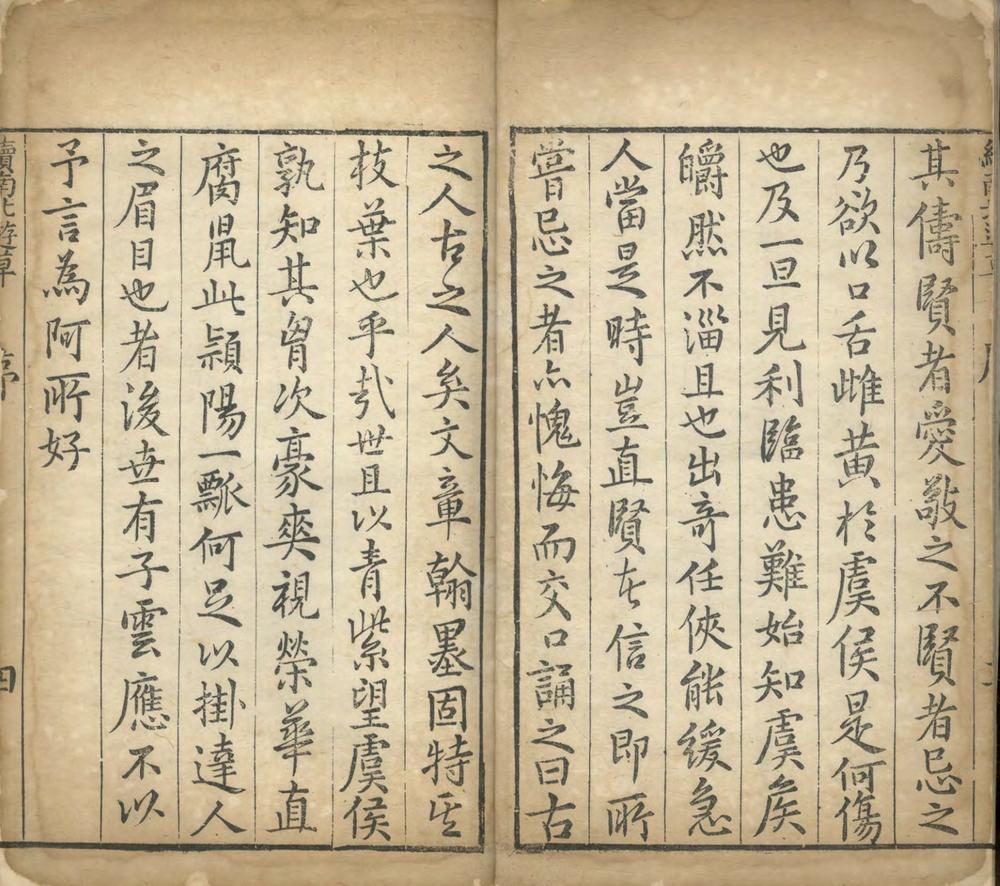 其儔賢者愛敬之不賢者忌之
乃欲以口舌雌黄於虞侯是何傷
也及一旦見利臨患難始知虞侯
皭然不淄且也出奇任俠能緩急
人當是時豈直賢者信之即所
嘗忌之者亦愧悔而交口誦之曰古
之人古之人矣文章翰墨固特其
枝葉也乎哉世且以青紫望虞侯
孰知其胷次豪爽視榮華直
腐鼠此潁陽一瓢何足以掛達人
之眉目也者後世有子雲應不以
予言為阿所好
續南北遊草 序 四